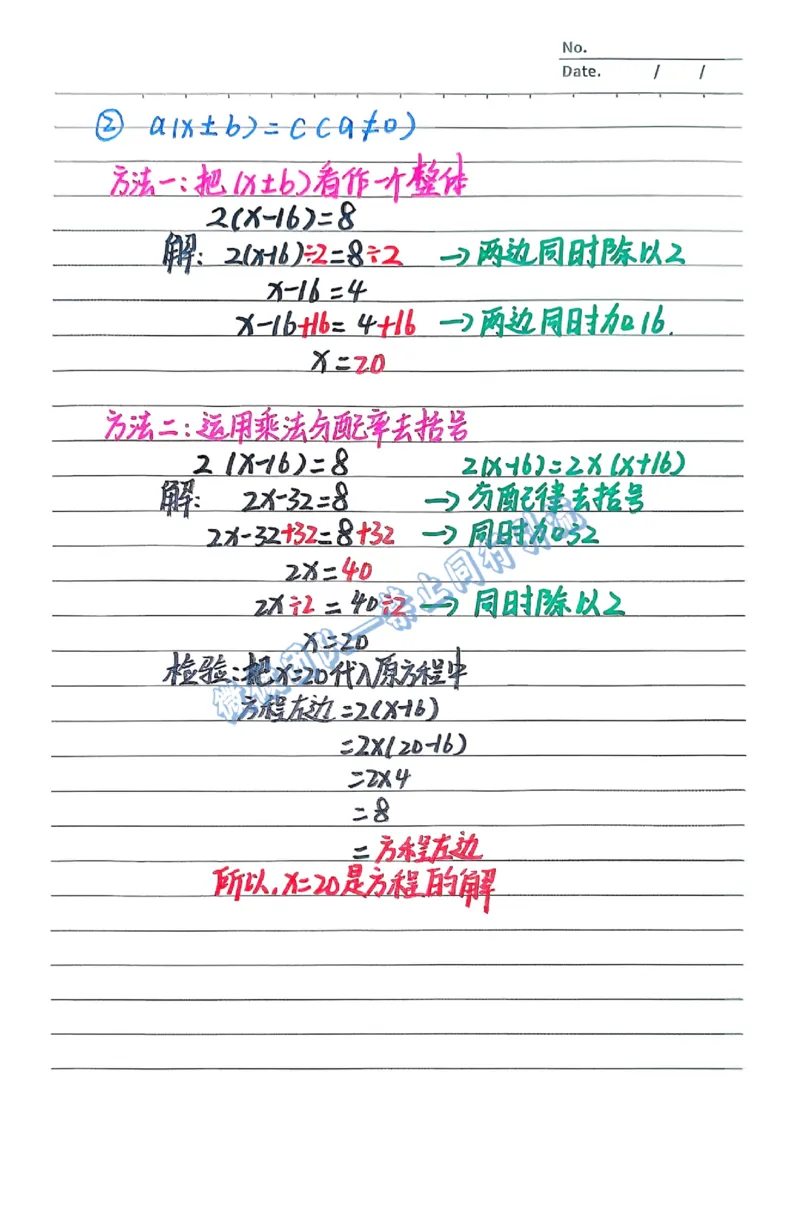 No.
Date. / /
② a(x±b)=c(a≠0)
方法一:把(x±b)看作一个整体
2(x-16)=8
解: 2(x-16)÷2=8÷2 → 两边同时除以2
x-16=4
x-16+16=4+16 → 两边同时加16.
x=20
方法二:运用乘法分配率去括号
2(x-16)=8 2(x-16)=2×(x+16)
解: 2x-32=8 → 分配律去括号
2x-32+32=8+32 → 同时加32
2x=40
2x÷2=40÷2 → 同时除以2
x=20
检验:把x=20代入原方程中
方程左边=2(x-16)
=2×(20-16)
=2×4
=8
=方程左边
所以,x=20是方程的解
禁止同行